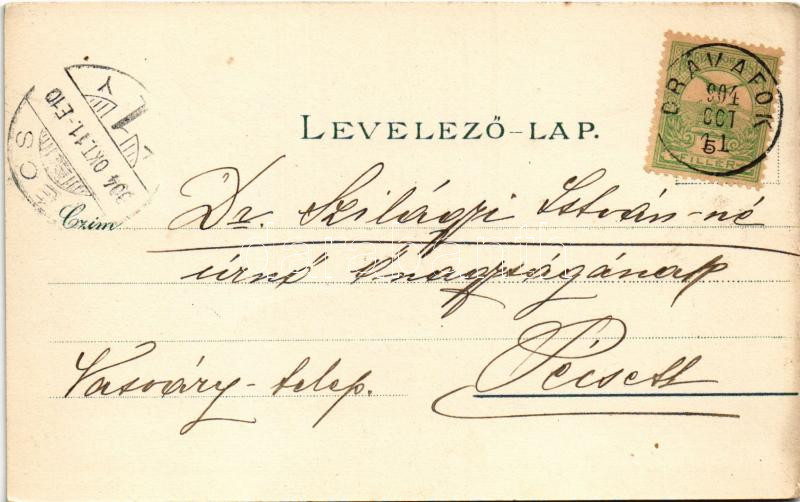 DRÁVAFOK
904
OCT
11
5
FILLÉR
904 OKT. 11.-E10
LEVELEZŐ-LAP.
Czim
Dr. Szilágyi István-né
úrnő Ő nagyságának
Vasváry-telep.
Pécsett